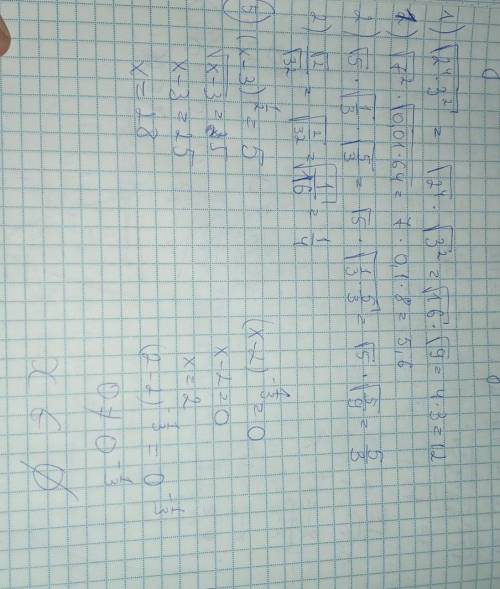 1) √(2⁴·3²) = √2⁴ · √3² = √16 · √9 = 4·3 = 12
2) √7² · √(0,01·64) = 7 · 0,1 · 8 = 5,6
2) √5 · √(1/3) · √(5/3) = √5 · √(1/3 · 5/3) = √5 · √(5/9) = 5/3
2) √2/√32 = √(2/32) = √(1/16) = 1/4
5) (x-3)^(1/2) = 5
√(x-3) = 25
x-3 = 25
x = 28
(x-2)^(-1/3) = 0
x-2 = 0
x = 2
(2-2)^(-1/3) = 0^(-1/3)
0 ≠ 0^(-1/3)
x ∈ ∅